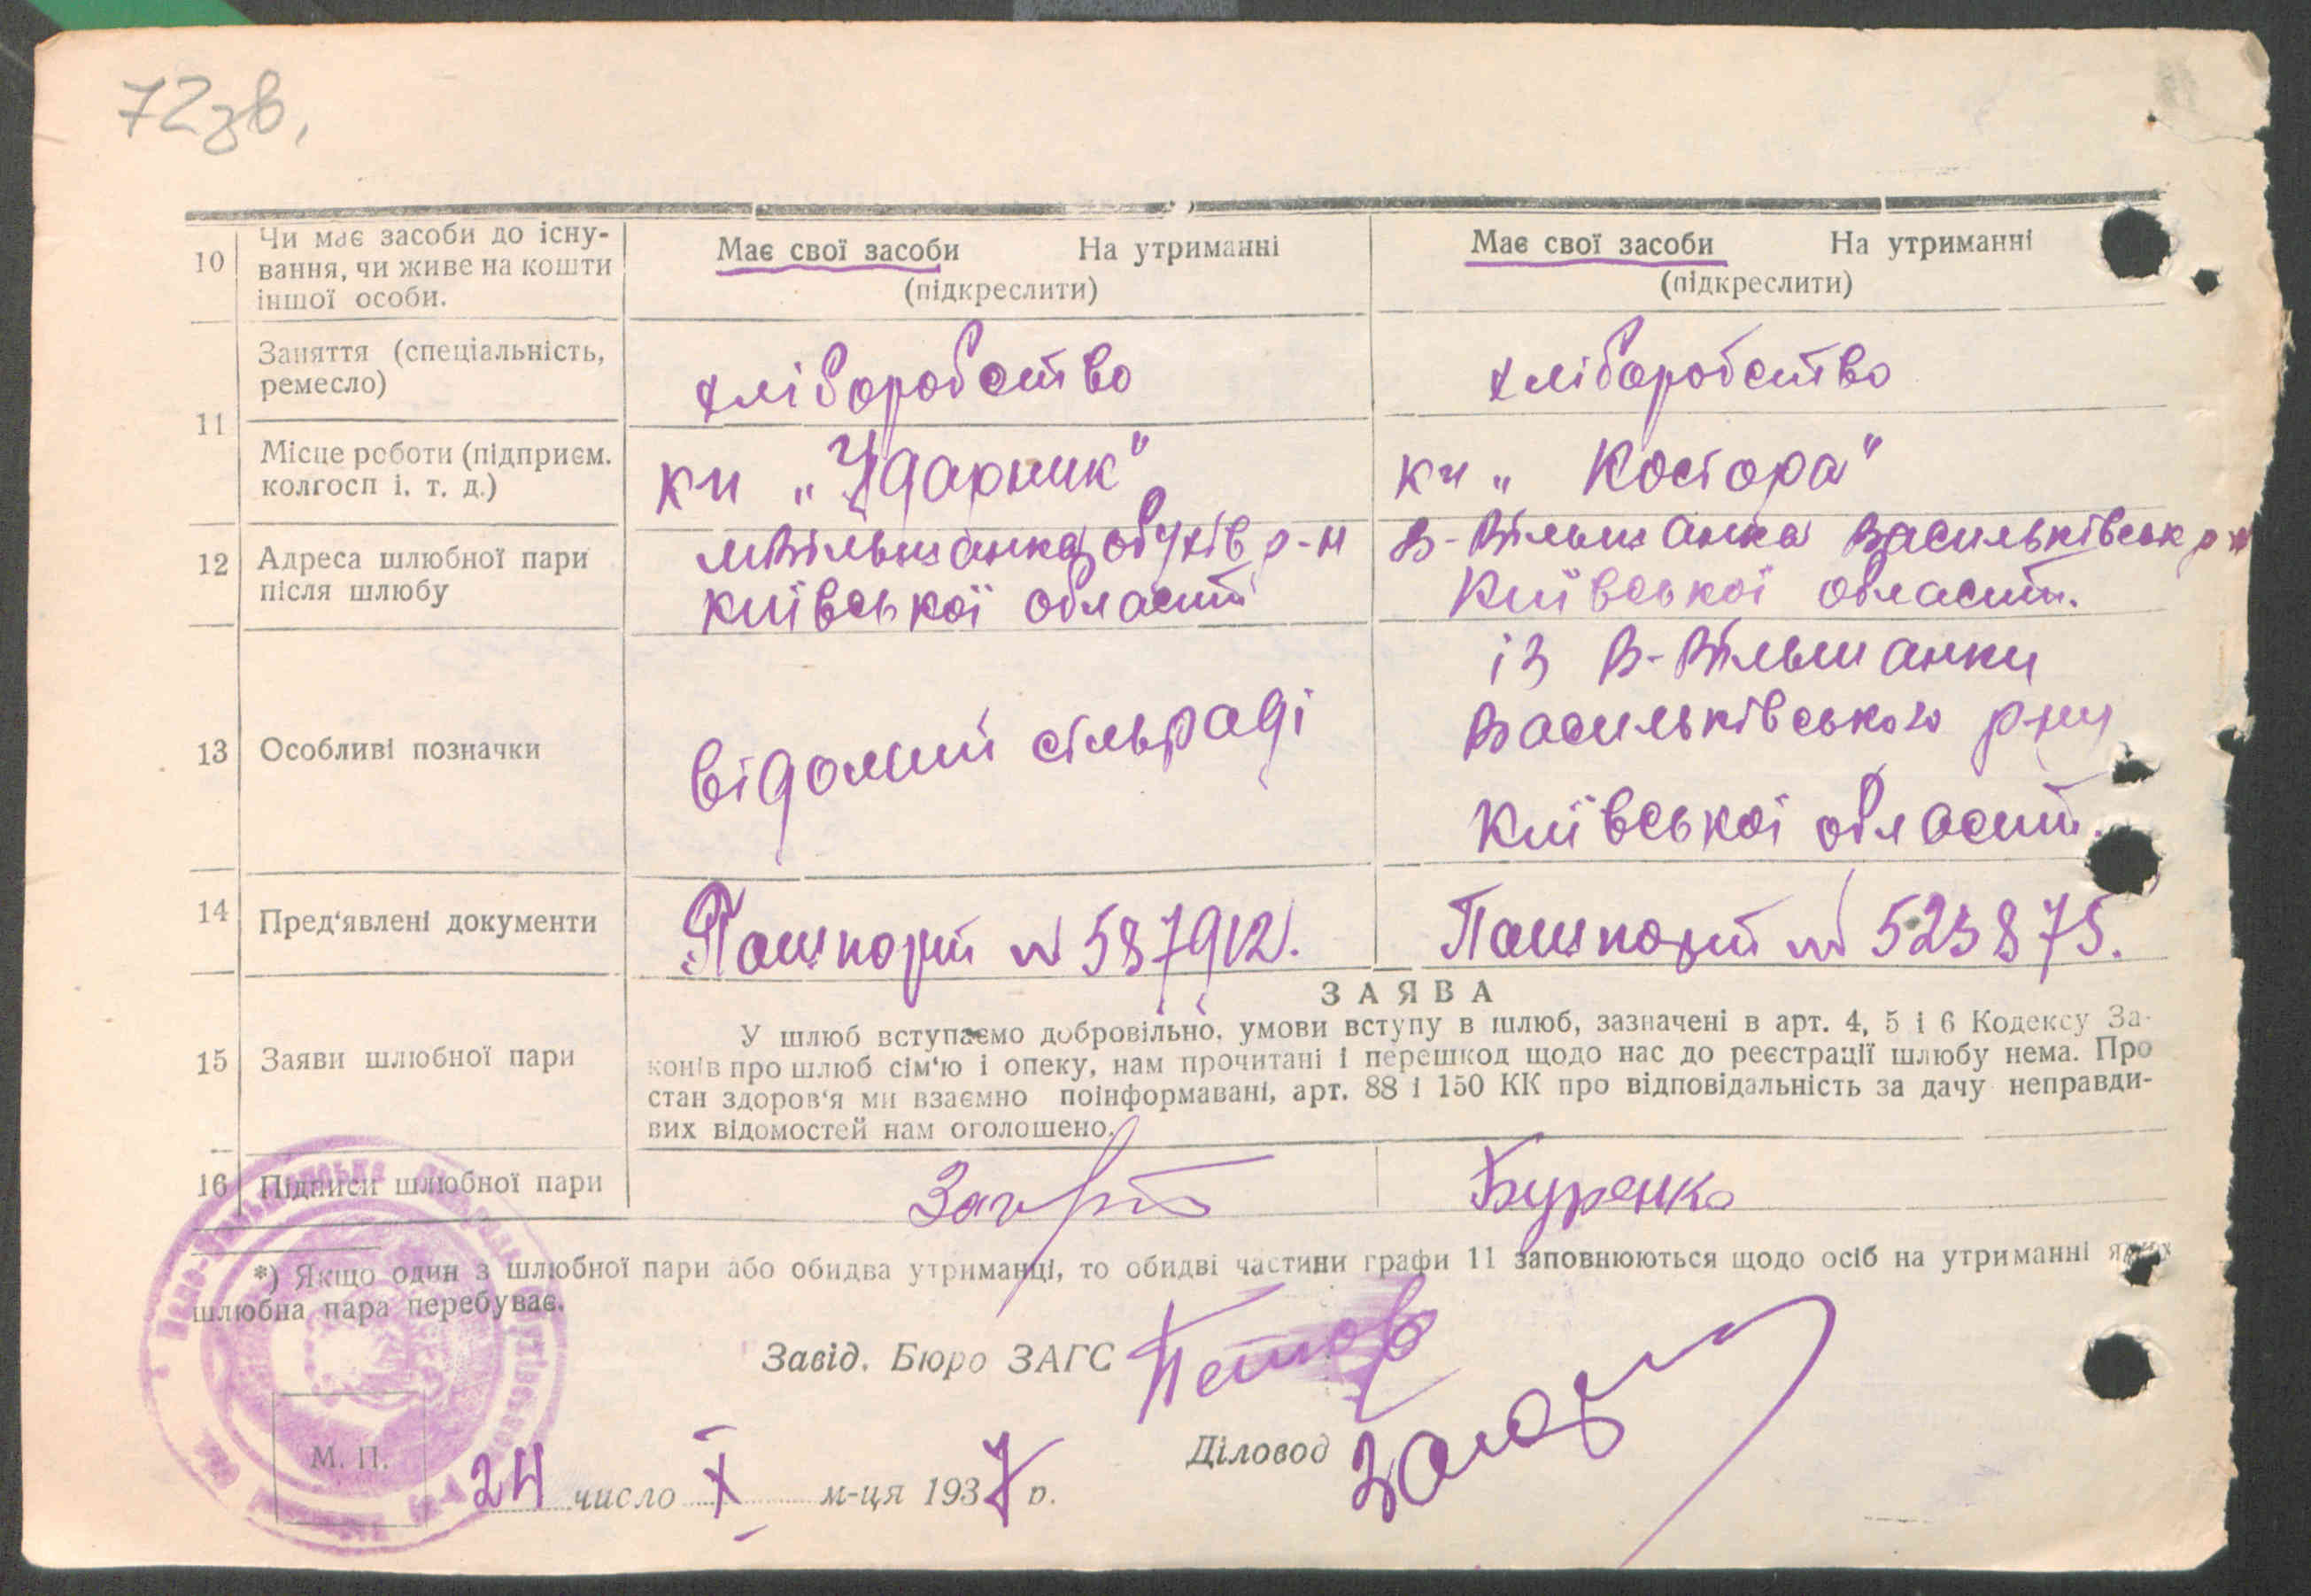 72зв.
10 Чи має засоби до існу-
вання, чи живе на кошти
іншої особи.
Має свої засоби На утриманні
(підкреслити)
Має свої засоби На утриманні
(підкреслити)
11
Заняття (спеціальність,
ремесло)
хліборобство
хліборобство
Місце роботи (підприєм.
колгосп і. т. д.)
кг „Ударник"
кг „Косіора"
12 Адреса шлюбної пари
після шлюбу
мВільшанка обухів р-н
київської області
В-Вільшанка Васильківськ р-н
Київської області.
13 Особливі позначки
відомий сільраді
із В-Вільшанки
Васильківського р-ну
Київської області.
14 Пред'явлені документи
Пашпорт № 587912.
Пашпорт № 523875.
15 Заяви шлюбної пари
ЗАЯВА
У шлюб вступаємо добровільно, умови вступу в шлюб, зазначені в арт. 4, 5 і 6 Кодексу За-
конів про шлюб сім'ю і опеку, нам прочитані і перешкод щодо нас до реєстрації шлюбу нема. Про
стан здоров'я ми взаємно поінформавані, арт. 88 і 150 КК про відповідальність за дачу неправди-
вих відомостей нам оголошено.
16 Підписи шлюбної пари
Буренко
*) Якщо один з шлюбної пари або обидва утриманці, то обидві частини графи 11 заповнюються щодо осіб на утриманні яких
шлюбна пара перебуває.
Завід. Бюро ЗАГС
Діловод
М. П.
24 число X м-ця 1937 р.